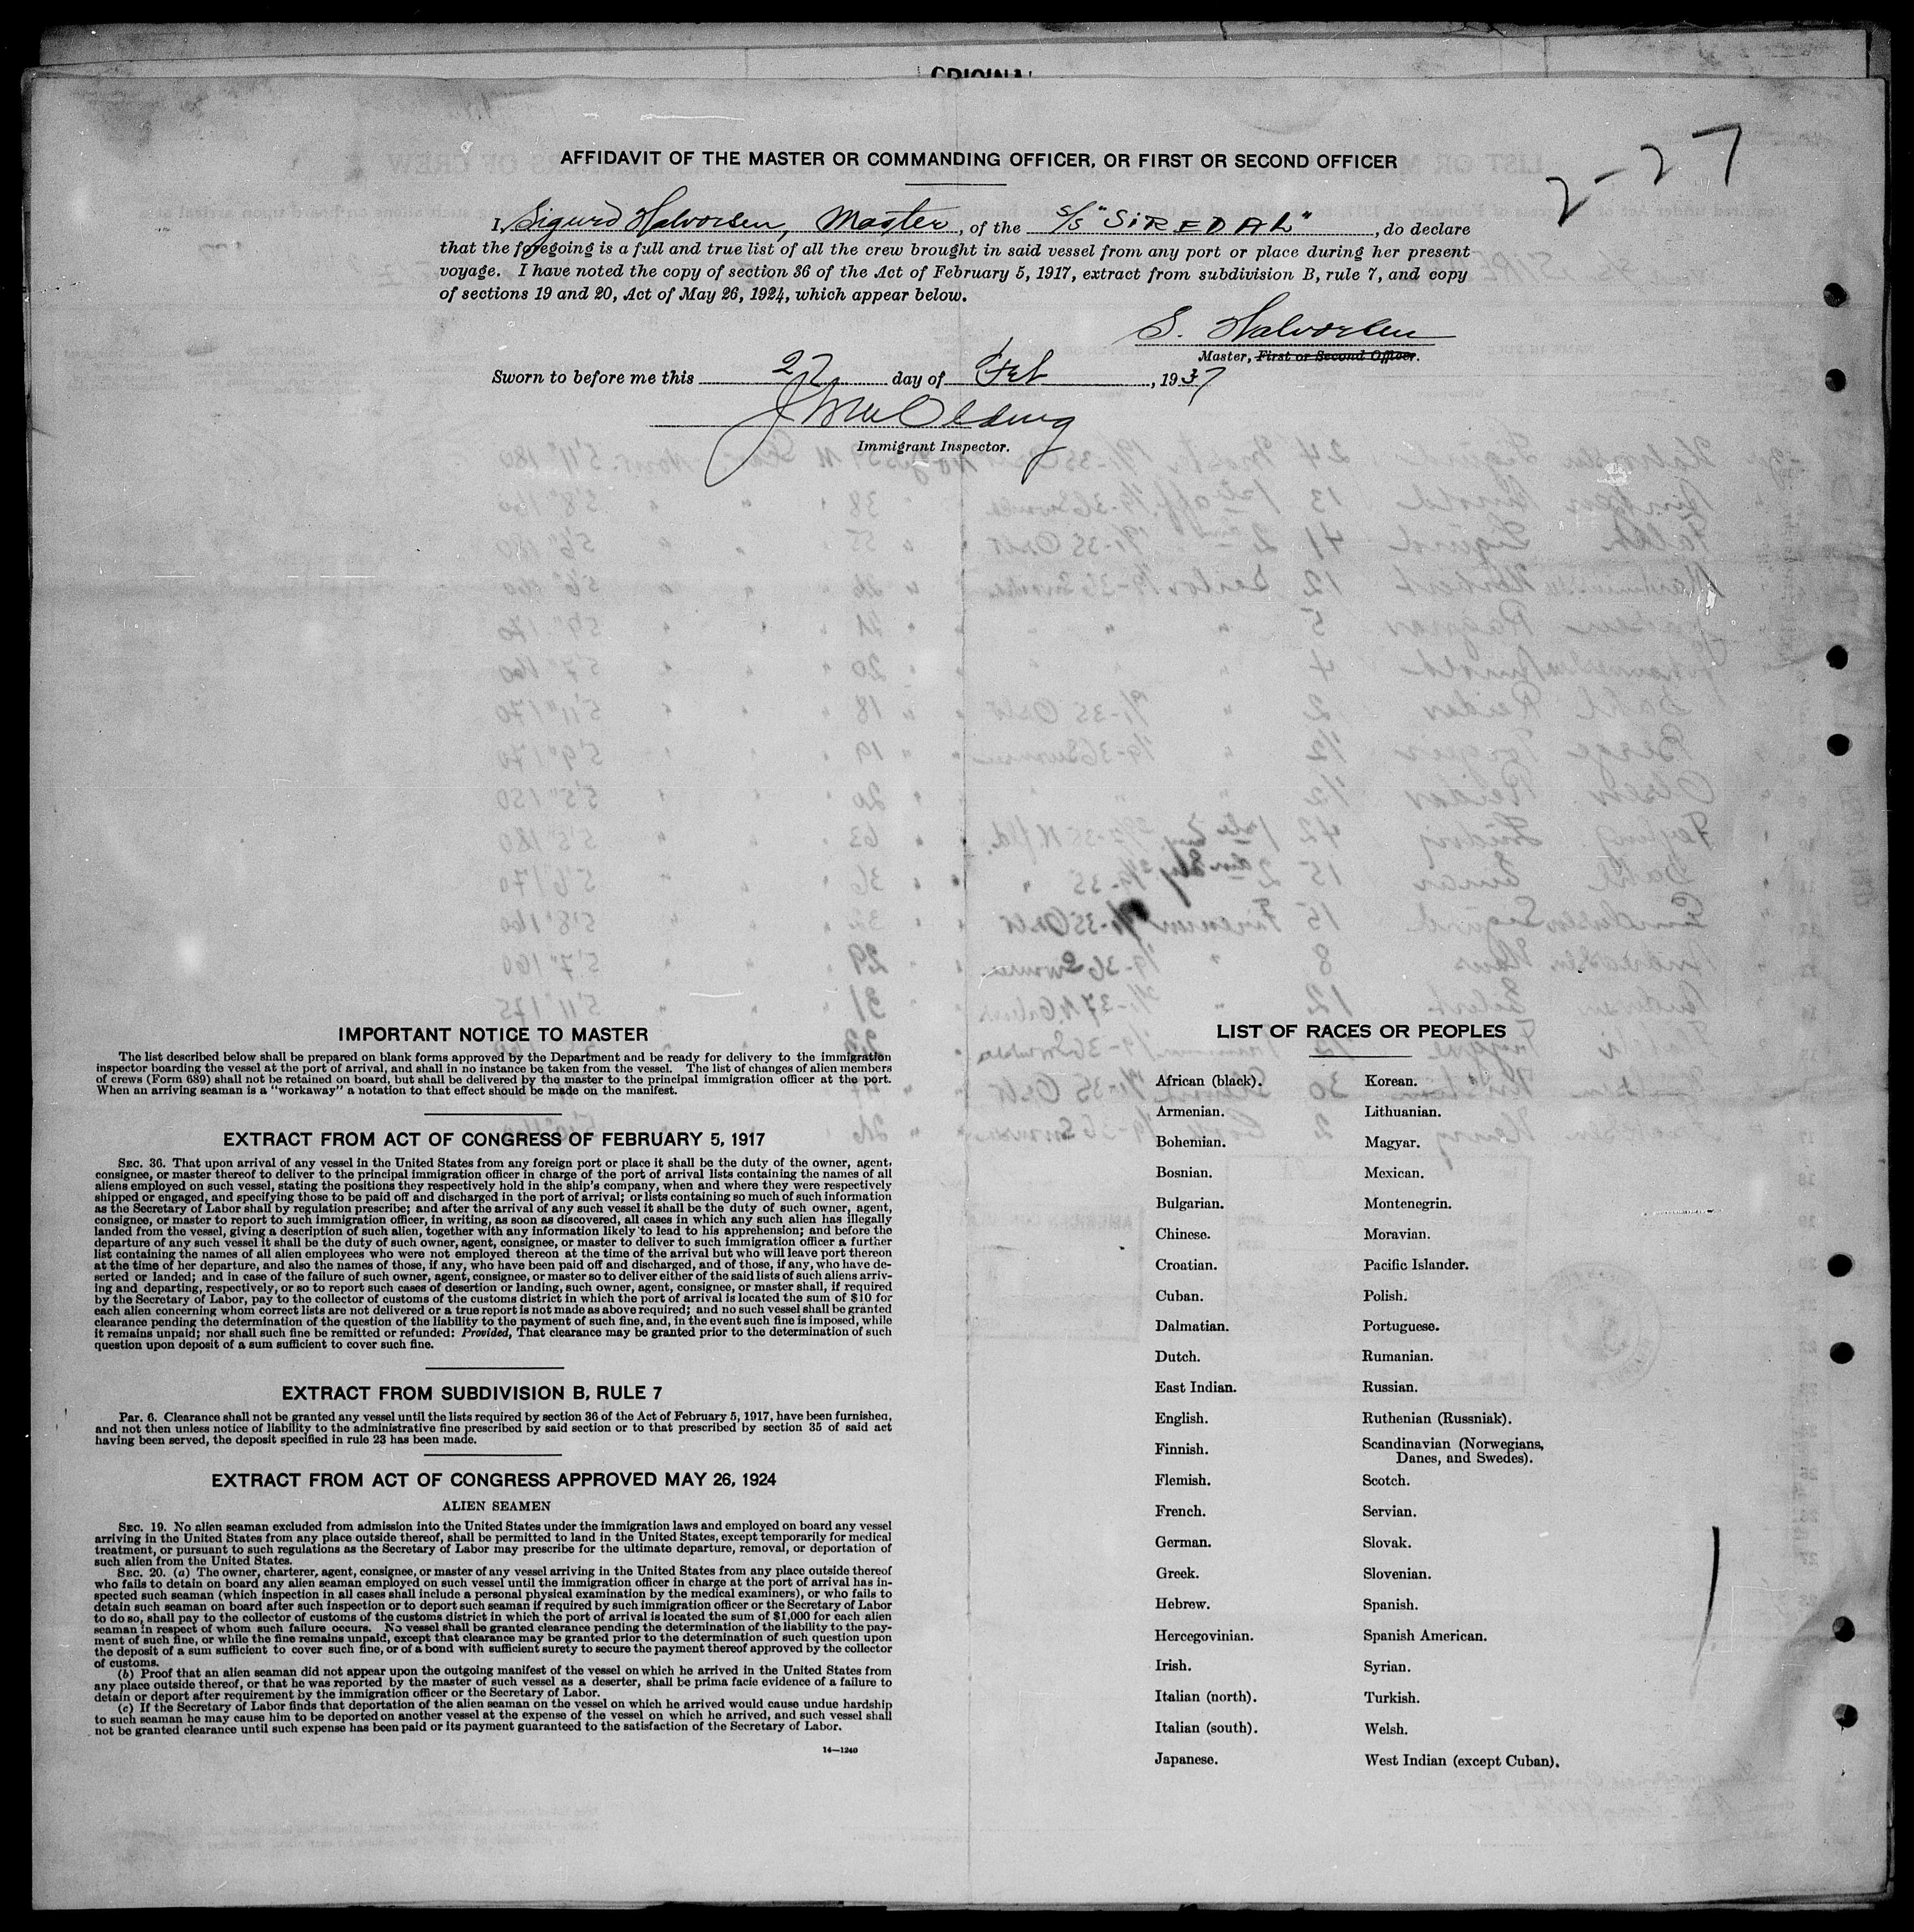 ORIGINAL
AFFIDAVIT OF THE MASTER OR COMMANDING OFFICER, OR FIRST OR SECOND OFFICER
2-27
I, Sigurd Halvorsen, Master, of the S/S "SIREDAL", do declare
that the foregoing is a full and true list of all the crew brought in said vessel from any port or place during her present
voyage. I have noted the copy of section 36 of the Act of February 5, 1917, extract from subdivision B, rule 7, and copy
of sections 19 and 20, Act of May 26, 1924, which appear below.
S. Halvorsen
Master, First or Second Officer.
Sworn to before me this 27 day of Feb, 1937
Immigrant Inspector.
IMPORTANT NOTICE TO MASTER
The list described below shall be prepared on blank forms approved by the Department and be ready for delivery to the immigration
inspector boarding the vessel at the port of arrival, and shall in no instance be taken from the vessel. The list of changes of alien members
of crews (Form 689) shall not be retained on board, but shall be delivered by the master to the principal immigration officer at the port.
When an arriving seaman is a "workaway" a notation to that effect should be made on the manifest.
EXTRACT FROM ACT OF CONGRESS OF FEBRUARY 5, 1917
SEC. 36. That upon arrival of any vessel in the United States from any foreign port or place it shall be the duty of the owner, agent,
consignee, or master thereof to deliver to the principal immigration officer in charge of the port of arrival lists containing the names of all
aliens employed on such vessel, stating the positions they respectively hold in the ship's company, when and where they were respectively
shipped or engaged, and specifying those to be paid off and discharged in the port of arrival; or lists containing so much of such information
as the Secretary of Labor shall by regulation prescribe; and after the arrival of any such vessel it shall be the duty of such owner, agent,
consignee, or master to report to such immigration officer, in writing, as soon as discovered, all cases in which any such alien has illegally
landed from the vessel, giving a description of such alien, together with any information likely to lead to his apprehension; and before the
departure of any such vessel it shall be the duty of such owner, agent, consignee, or master to deliver to such immigration officer a further
list containing the names of all alien employees who were not employed thereon at the time of the arrival but who will leave port thereon
at the time of her departure, and also the names of those, if any, who have been paid off and discharged, and of those, if any, who have de-
serted or landed; and in case of the failure of such owner, agent, consignee, or master so to deliver either of the said lists of such aliens arriv-
ing and departing, respectively, or so to report such cases of desertion or landing, such owner, agent, consignee, or master shall, if required
by the Secretary of Labor, pay to the collector of customs of the customs district in which the port of arrival is located the sum of $10 for
each alien concerning whom correct lists are not delivered or a true report is not made as above required; and no such vessel shall be granted
clearance pending the determination of the question of the liability to the payment of such fine, and, in the event such fine is imposed, while
it remains unpaid; nor shall such fine be remitted or refunded: Provided, That clearance may be granted prior to the determination of such
question upon deposit of a sum sufficient to cover such fine.
EXTRACT FROM SUBDIVISION B, RULE 7
Par. 6. Clearance shall not be granted any vessel until the lists required by section 36 of the Act of February 5, 1917, have been furnished,
and not then unless notice of liability to the administrative fine prescribed by said section or to that prescribed by section 35 of said act
having been served, the deposit specified in rule 23 has been made.
EXTRACT FROM ACT OF CONGRESS APPROVED MAY 26, 1924
ALIEN SEAMEN
SEC. 19. No alien seaman excluded from admission into the United States under the immigration laws and employed on board any vessel
arriving in the United States from any place outside thereof, shall be permitted to land in the United States, except temporarily for medical
treatment, or pursuant to such regulations as the Secretary of Labor may prescribe for the ultimate departure, removal, or deportation of
such alien from the United States.
SEC. 20. (a) The owner, charterer, agent, consignee, or master of any vessel arriving in the United States from any place outside thereof
who fails to detain on board any alien seaman employed on such vessel until the immigration officer in charge at the port of arrival has in-
spected such seaman (which inspection in all cases shall include a personal physical examination by the medical examiners), or who fails to
detain such seaman on board after such inspection or to deport such seaman if required by such immigration officer or the Secretary of Labor
to do so, shall pay to the collector of customs of the customs district in which the port of arrival is located the sum of $1,000 for each alien
seaman in respect of whom such failure occurs. No vessel shall be granted clearance pending the determination of the liability to the pay-
ment of such fine, or while the fine remains unpaid, except that clearance may be granted prior to the determination of such question upon
the deposit of a sum sufficient to cover such fine, or of a bond with sufficient surety to secure the payment thereof approved by the collector
of customs.
(b) Proof that an alien seaman did not appear upon the outgoing manifest of the vessel on which he arrived in the United States from
any place outside thereof, or that he was reported by the master of such vessel as a deserter, shall be prima facie evidence of a failure to
detain or deport after requirement by the immigration officer or the Secretary of Labor.
(c) If the Secretary of Labor finds that deportation of the alien seaman on the vessel on which he arrived would cause undue hardship
to such seaman he may cause him to be deported on another vessel at the expense of the vessel on which he arrived, and such vessel shall
not be granted clearance until such expense has been paid or its payment guaranteed to the satisfaction of the Secretary of Labor.
14—1240
LIST OF RACES OR PEOPLES
African (black).
Armenian.
Bohemian.
Bosnian.
Bulgarian.
Chinese.
Croatian.
Cuban.
Dalmatian.
Dutch.
East Indian.
English.
Finnish.
Flemish.
French.
German.
Greek.
Hebrew.
Hercegovinian.
Irish.
Italian (north).
Italian (south).
Japanese.
Korean.
Lithuanian.
Magyar.
Mexican.
Montenegrin.
Moravian.
Pacific Islander.
Polish.
Portuguese.
Rumanian.
Russian.
Ruthenian (Russniak).
Scandinavian (Norwegians,
Danes, and Swedes).
Scotch.
Servian.
Slovak.
Slovenian.
Spanish.
Spanish American.
Syrian.
Turkish.
Welsh.
West Indian (except Cuban).